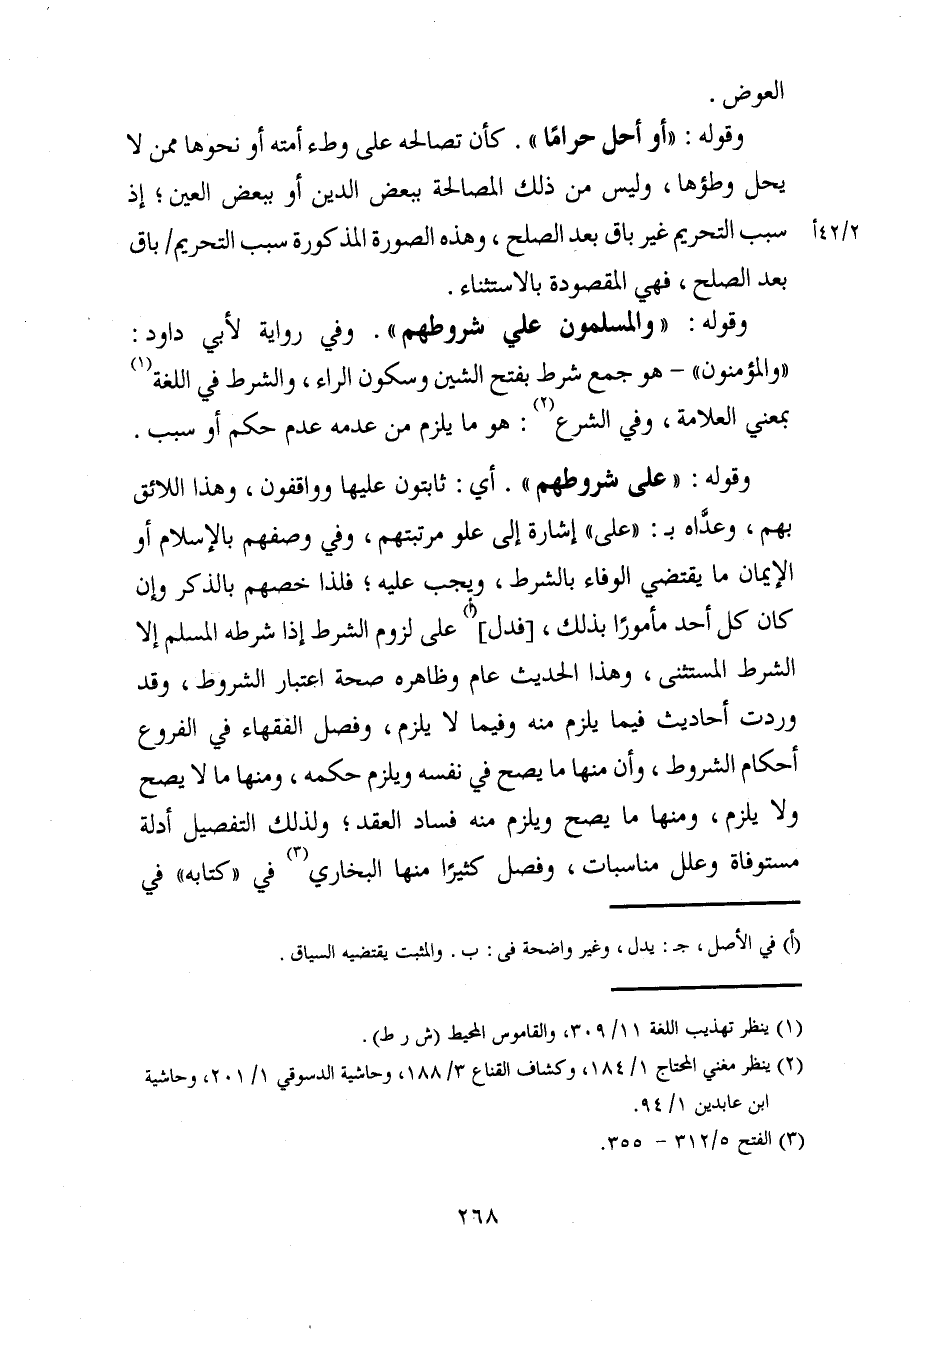 العوض .
وقوله : «أو أحل حرامًا» . كأن تصالحه على وطء أمته أو نحوها ممن لا
يحل وطؤها ، وليس من ذلك المصالحة ببعض الدين أو ببعض العين ؛ إذ
٤٢/٢أ سبب التحريم غير باق بعد الصلح ، وهذه الصورة المذكورة سبب التحريم/ باق
بعد الصلح ، فهي المقصودة بالاستثناء .
وقوله : «والمسلمون علي شروطهم» . وفي رواية لأبي داود :
«والمؤمنون» – هو جمع شرط بفتح الشين وسكون الراء ، والشرط في اللغة(١)
بمعني العلامة ، وفي الشرع(٢) : هو ما يلزم من عدمه عدم حكم أو سبب .
وقوله : «على شروطهم» . أي : ثابتون عليها وواقفون ، وهذا اللائق
بهم ، وعدَّاه بـ : «على» إشارة إلى علو مرتبتهم ، وفي وصفهم بالإسلام أو
الإيمان ما يقتضي الوفاء بالشرط ، ويجب عليه ؛ فلذا خصهم بالذكر وإن
كان كل أحد مأمورًا بذلك ، [فدل](أ) على لزوم الشرط إذا شرطه المسلم إلا
الشرط المستثنى ، وهذا الحديث عام وظاهره صحة اعتبار الشروط ، وقد
وردت أحاديث فيما يلزم منه وفيما لا يلزم ، وفصل الفقهاء في الفروع
أحكام الشروط ، وأن منها ما يصح في نفسه ويلزم حكمه ، ومنها ما لا يصح
ولا يلزم ، ومنها ما يصح ويلزم منه فساد العقد ؛ ولذلك التفصيل أدلة
مستوفاة وعلل مناسبات ، وفصل كثيرًا منها البخاري(٣) في «كتابه» في
(أ) في الأصل ، جـ : يدل ، وغير واضحة فى : ب . والمثبت يقتضيه السياق .
(١) ينظر تهذيب اللغة ١١/ ٣٠٩، والقاموس المحيط (ش ر ط) .
(٢) ينظر مغني المحتاج ١/ ١٨٤، وكشاف القناع ٣/ ١٨٨، وحاشية الدسوقي ١/ ٢٠١، وحاشية
ابن عابدين ١/ ٩٤.
(٣) الفتح ٣١٢/٥ – ٣٥٥.
٢٦٨